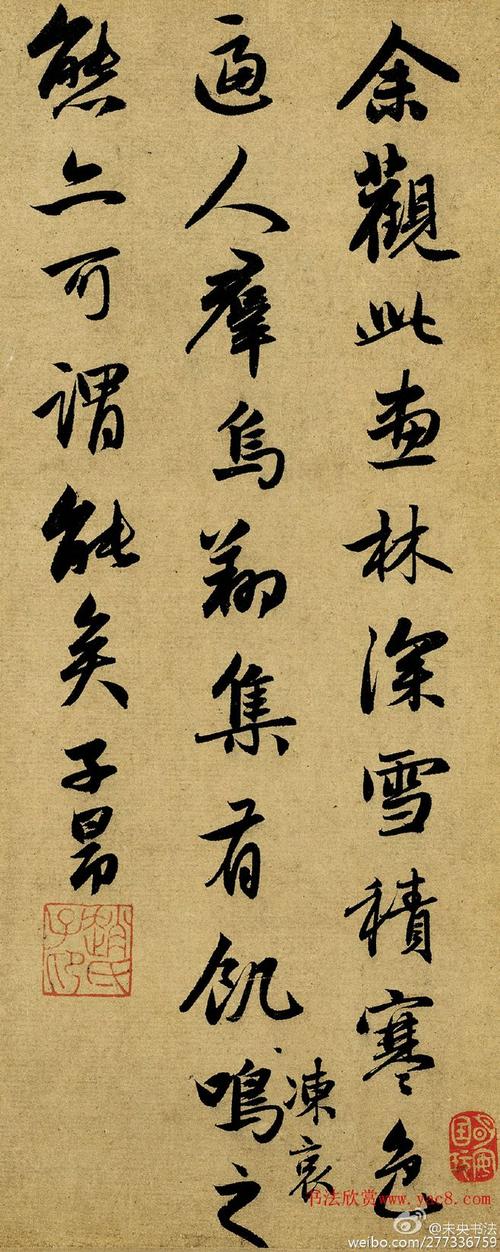 余觀此畫林深雪積寒色
逼人羣烏翔集有飢鳴之
凍哀
態亦可謂能矣子昂
趙氏子昂
书法欣赏www.yac8.com
@未央书法
weibo.com/277336759